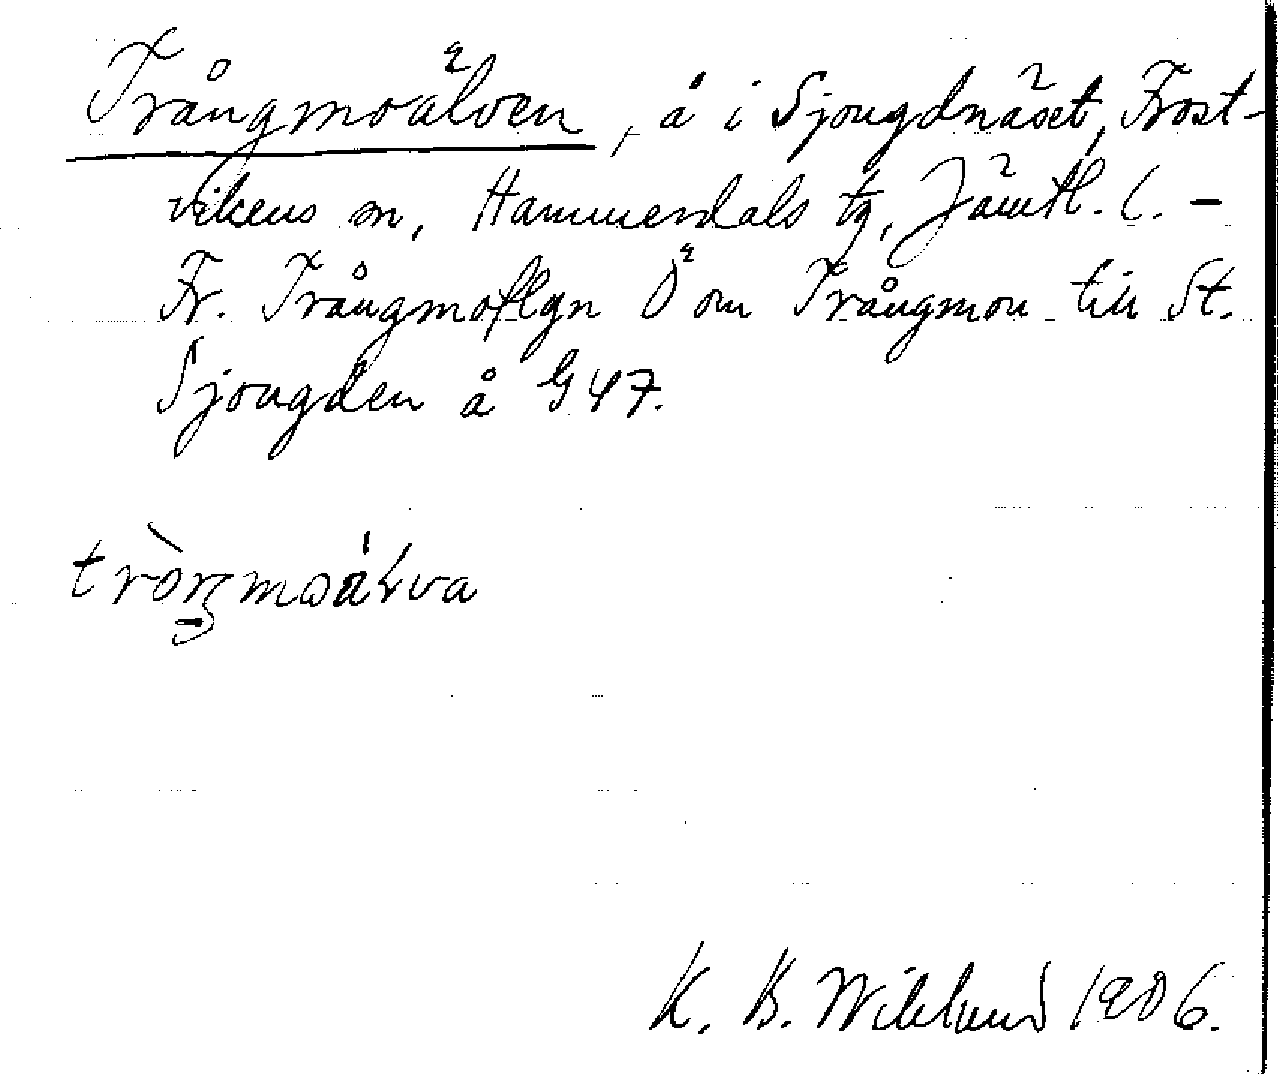 Trångmoälven, å i Sjougdnäset, Frost-
vikens sn, Hammerdals tg, Jämtl. l. –
Fr. Trångmoflyn Ö om Trångmon till St.
Sjougden å G 47.
tròŋmoáɫva
K. B. Wiklund 1906.